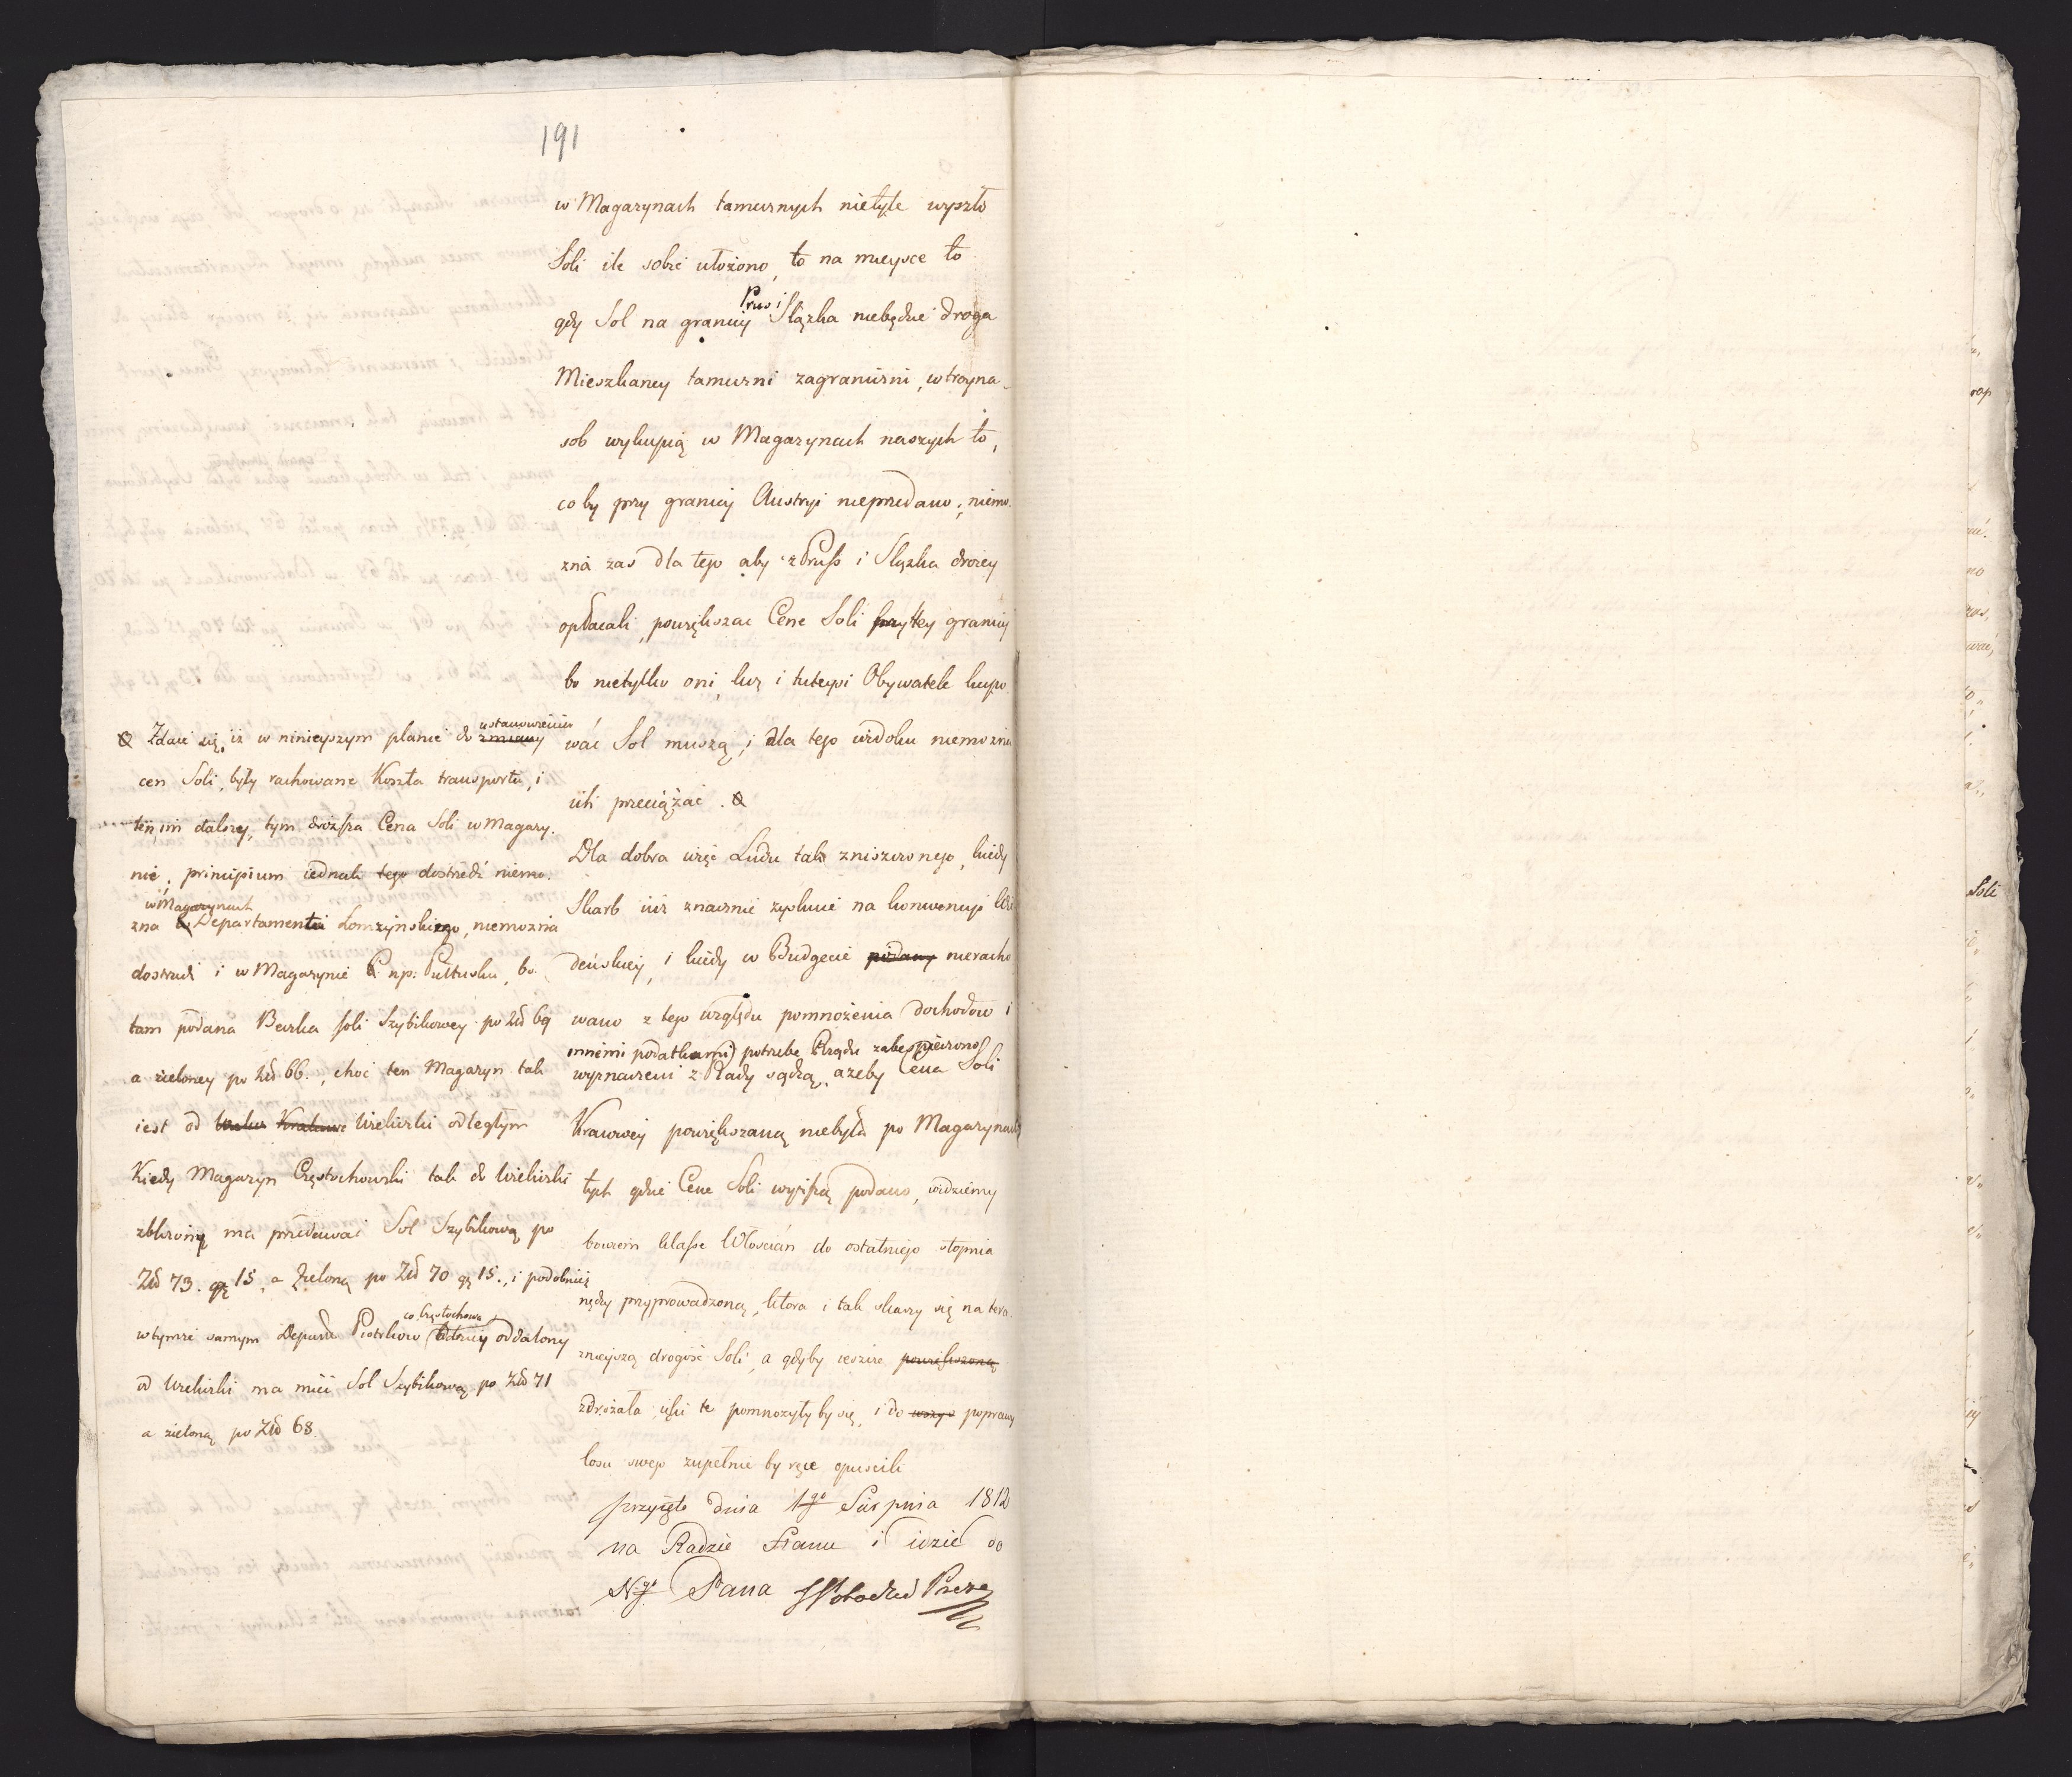 191
w Magazynach tamecznych nietyle wyszło
Soli ile sobie ułożono, to na mieysce to
Prus i
gdy Sol na granicy Sląska niebędzie droga
Mieszkancy tameczni zagraniczni, w troyna-
sob wykupią w Magazynach naszych to,
co by przy granicy Austryi nieprzedano; niemo-
zna zas dla tego aby z Pruss i Sląska drożey
opłacali, powiększac Cene Soli przy tey granicy
bo nietylko oni, lecz i tuteysi Obywatele kupo-
wać Sol muszą, i dla tego widoku niemozna
ich przeciążać.
Dla dobra więc Ludu tak zniszczonego, kiedy
Skarb iuż znacznie zyskuie na konwencyi Wie
deńskiey, i kiedy w Budgecie podany nieracho
wano z tego względu pomnożenia dochodow i
innemi podatkami potrzebe Rządu zabespieczono
wyznaczeni z Rady sądzą, azeby Cena Soli
Kraiowey powiększaną niebyła po Magazynach
tych gdzie Cene Soli wyższą podano, widziemy
bowiem klasse Włoscian do ostatniego stopnia
nędzy przyprowadzoną, ktora i tak skarzy się na tera
znieyszą drogość Soli, a gdyby ieszcze powiększoną
zdrożała, uski te pomnożyły by się, i do poprawy
losu swego zupełnie by ręce opuscili
przyięto dnia 1go Sierpnia 1812
na Radzie Stanu i idzie do
Ngo Pana SPotocki Preze
ustanowienia
Zdaie się, iż w ninieyszym planie do zmiany
cen Soli, były rachowane Koszta transportu, i
ten im daley, tym droższa Cena Soli w Magazy-
nie, principium iednak tego dostrzedz niemo-
w Magazynach
zna Departamentu Łomzynskiego, niemozna
dostrzedz i w Magazynie np: Pułtusku, bo
tam podana Beczka soli Szybikowey po Złł 69
a zieloney po Złł 66., choć ten Magazyn tak
iest od Krakowa Wieliczki odległym
Kiedy Magazyn Częstochowski tak do Wieliczki
zbliżony ma przedawać Sol Szybikową po
Złł 73. gr 15, a Zieloną po Złł 70 gr 15., i podobnież
co Częstochowa
w tymże samym Depcie Piotrkow oddalony
od Wieliczki ma mieć Sol Szybikową po Złł 71
a zieloną po Złł 68.
Soli